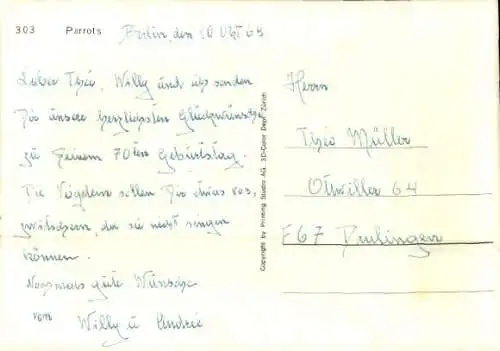 303 Parrots
Berlin, den 10 Okt 69
Lieber Theo, Willy und ich senden
Dir unsere herzlichsten Glückwünsche
zu Deinem 70ten Geburtstag.
Die Vögelein sollen Dir etwas vor-
zwitschern, da sie nicht singen
können.
Nochmals gute Wünsche
von Willy u
Copyright by Printing Studio AG. 3D-Color Dept. Zürich
Herrn
Theo Müller
64